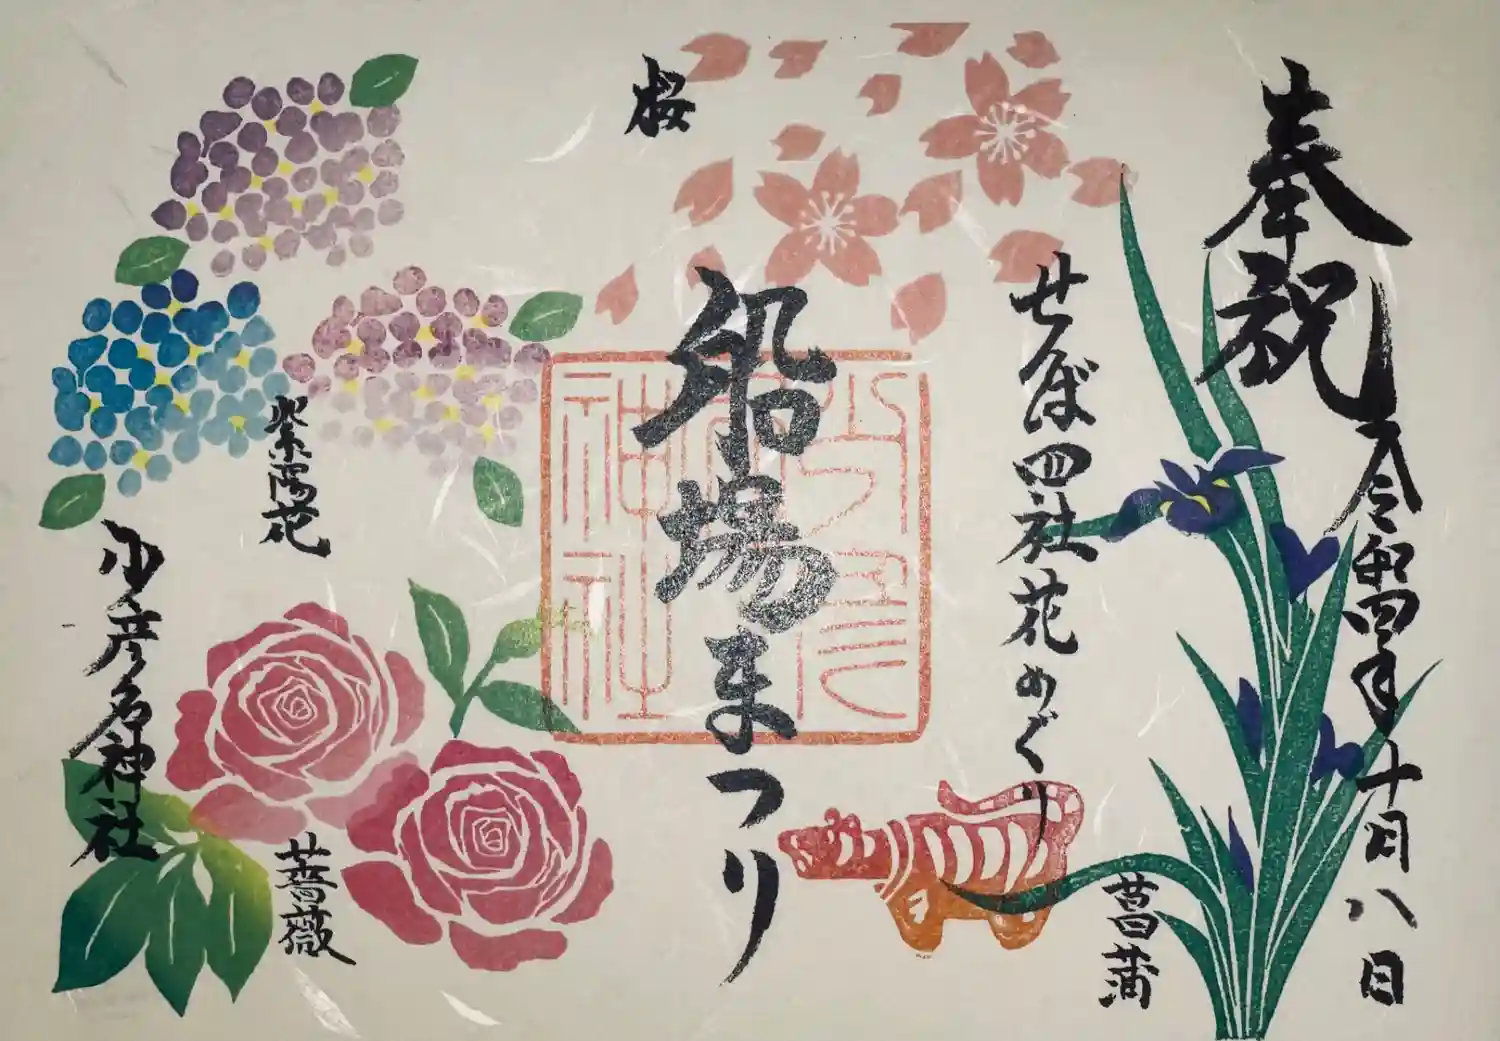 奉祝
令和四年十月八日
菖蒲
せんば四社花めぐり
桜
船場まつり
少彦名神社
紫陽花
薔薇
少彦名神社